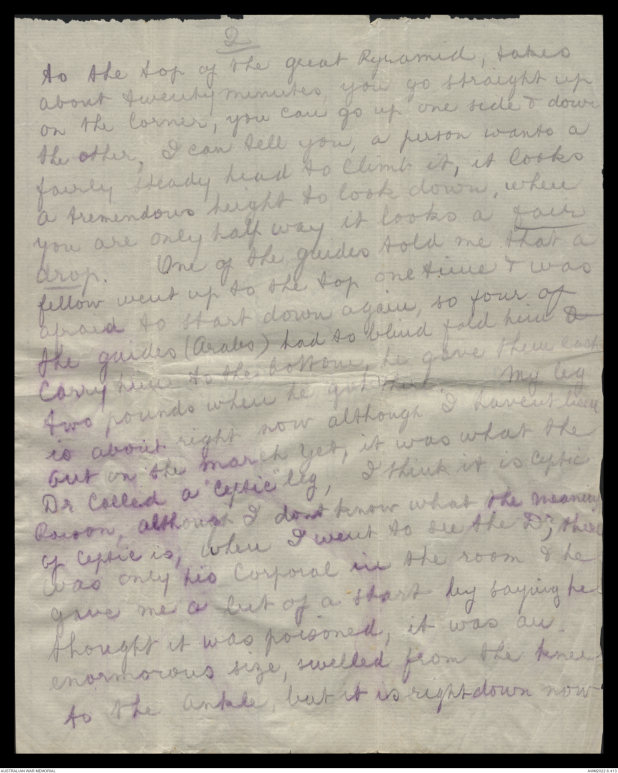 2
to the top of the great Pyramid, takes
about twenty minutes, you go straight up
on the corner, you can go up one side & down
the other, I can tell you, a person wants a
fairly steady head to climb it, it looks
a tremendous height to look down, when
you are only half way it looks a fair
drop. One of the guides told me that a
fellow went up to the top one time & was
afraid to start down again, so four of
the guides (Arabs) had to blind fold him &
carry him to the bottom, he gave them each
two pounds when he got there. My leg
is about right now although I havent been
out on the march yet, it was what the
Dr called a "ceptic" leg, I think it is ceptic
Poison, although I dont know what the meaning
of ceptic is, when I went to see the Dr, there
was only his Corporal in the room & he
gave me a bit of a start by saying he
thought it was poisoned, it was an
enormorous size, swelled from the knee
to the ankle, but it is right down now
AUSTRALIAN WAR MEMORIAL